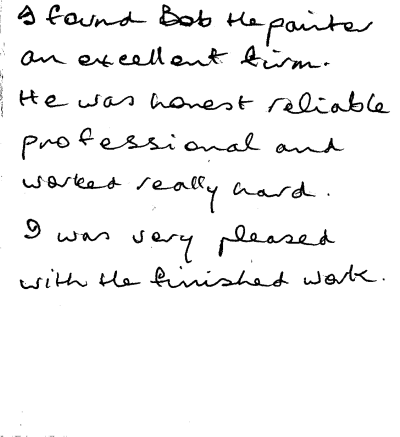 I found Bob the painter
an excellent firm.
He was honest reliable
professional and
worked really hard.
I was very pleased
with the finished work.